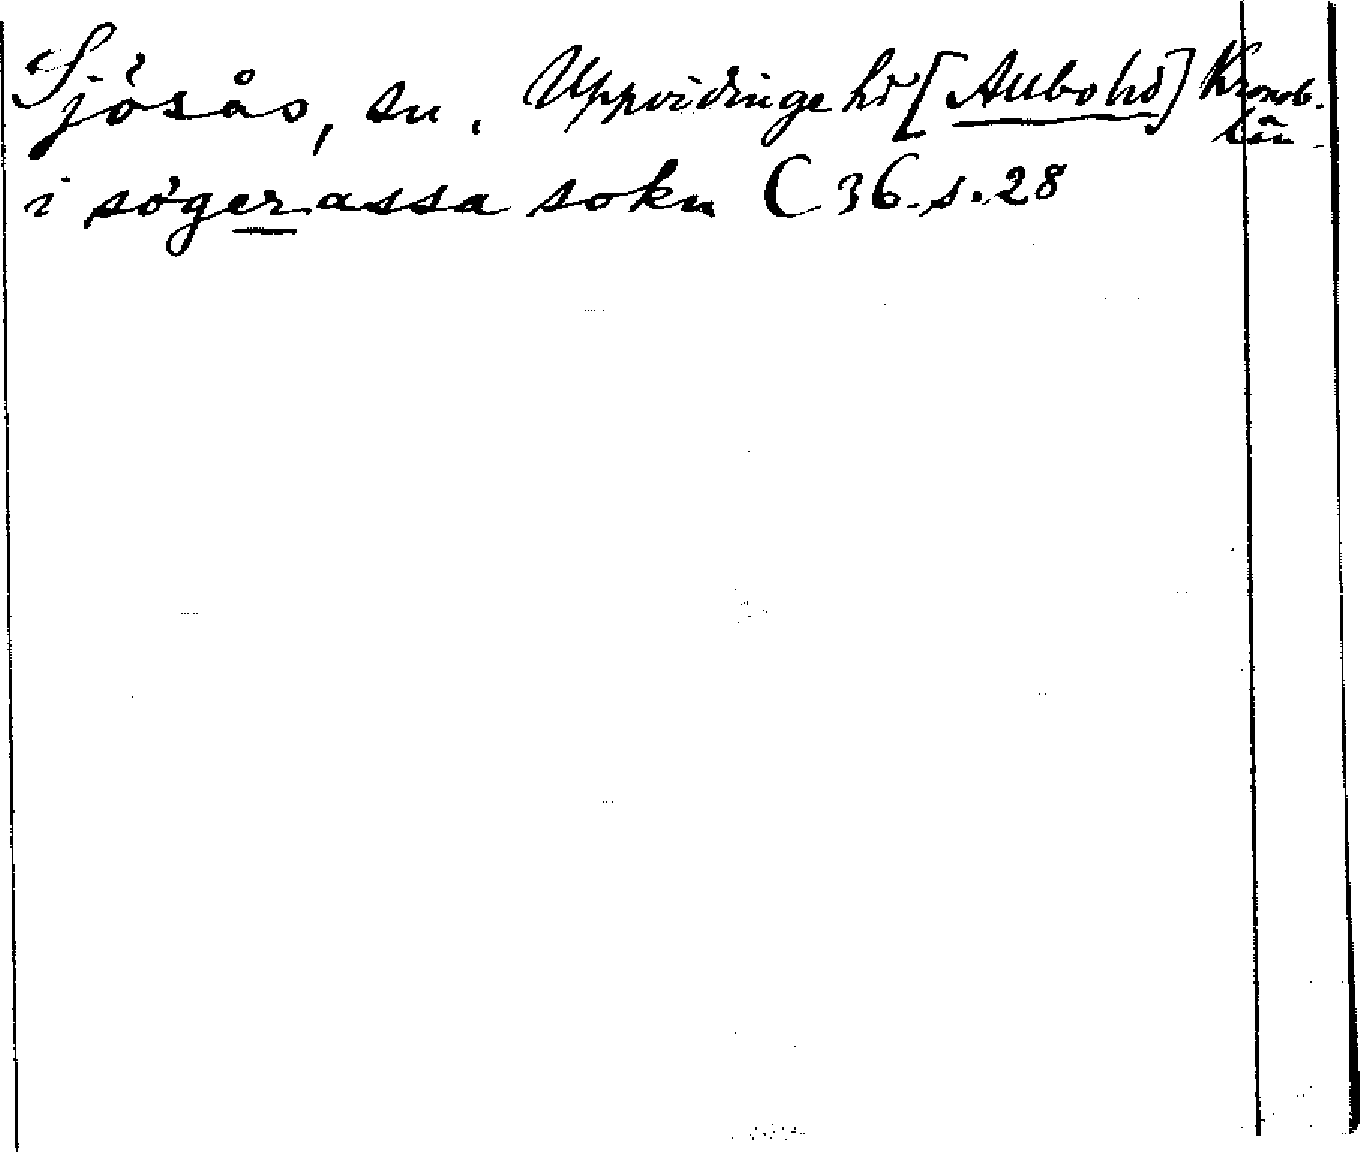 Sjösås, sn. Uppvidinge hd [Allbo hd] Kronob.
län
i sögerassa sokn C 36 s. 28